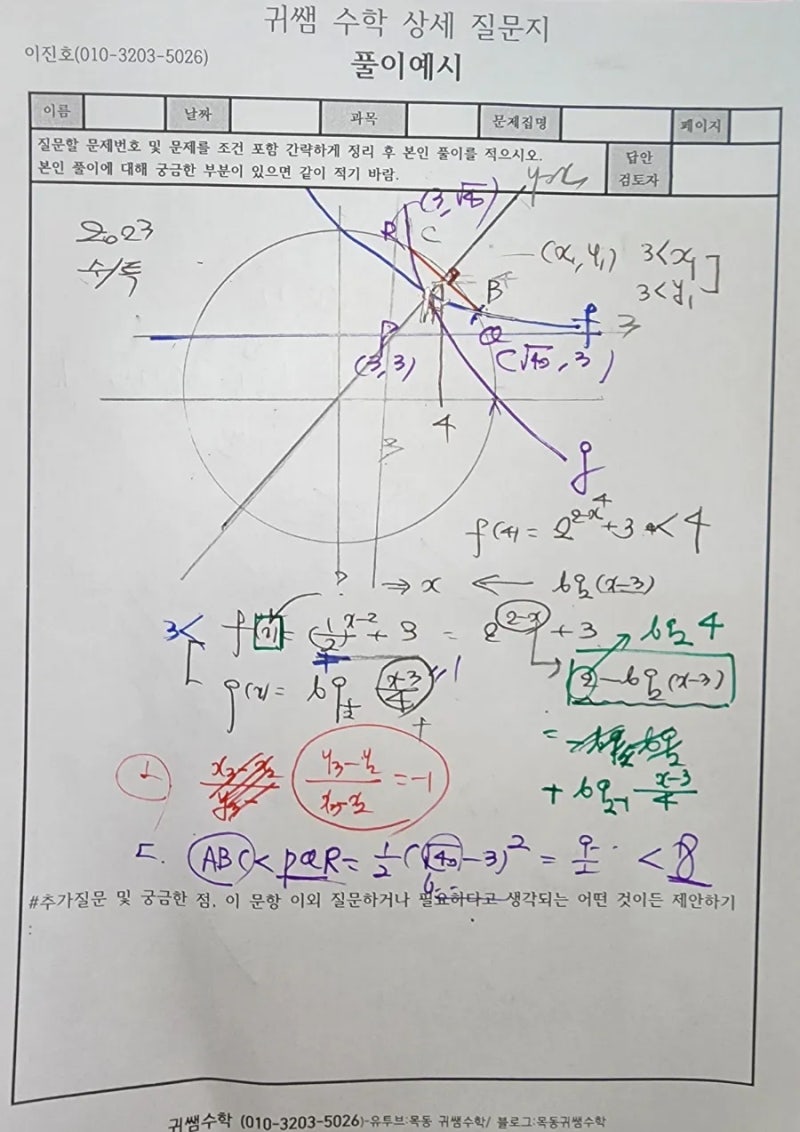 귀쌤 수학 상세 질문지
이진호(010-3203-5026)
풀이예시
이름 날짜 과목 문제집명 페이지
질문할 문제번호 및 문제를 조건 포함 간략하게 정리 후 본인 풀이를 적으시오.
본인 풀이에 대해 궁금한 부분이 있으면 같이 적기 바람.
답안
검토자
y=x
2023
수특
(3, √40)
R C
(x₁, y₁) 3<x₁
3<y₁
B
f
3
P
Q
(3, 3)
(√40, 3)
4
3
g
f(4) = 2^(2-x) 4 + 3 < 4
? ⇒ x ← log₂(x-3)
3< f(x) = (1/2)^(x-2) + 3 = 2^(2-x) + 3 log₂4
g(x) = log_(1/2) (x-3)/4 2-log₂(x-3)
=
+ log_(2^-1) (x-3)/4
ㄴ (y₃-y₂)/(x₃-x₂) = -1
ㄷ. ABC < PQR = 1/2(√40-3)² = 9/2 < 8
6.--
#추가질문 및 궁금한 점, 이 문항 이외 질문하거나 필요하다고 생각되는 어떤 것이든 제안하기
:
귀쌤수학 (010-3203-5026)-유투브:목동 귀쌤수학/ 블로그:목동귀쌤수학